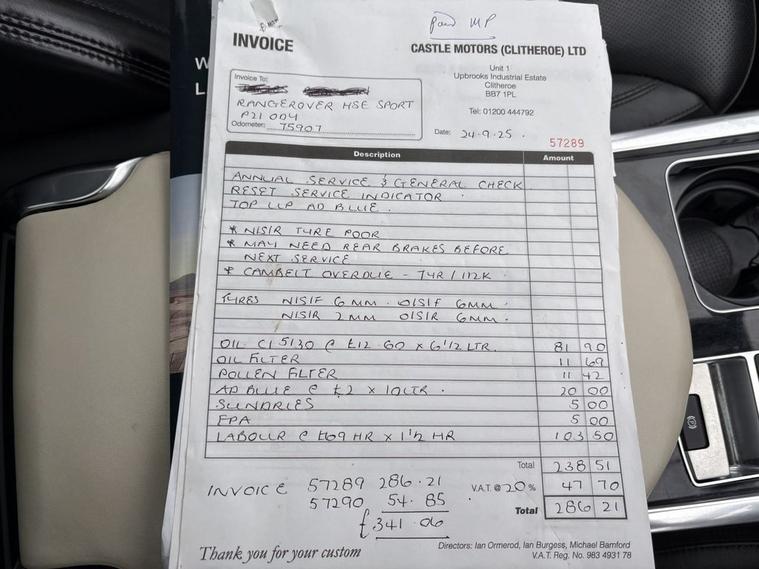 Paid MP
INVOICE
CASTLE MOTORS (CLITHEROE) LTD
Unit 1
Upbrooks Industrial Estate
Clitheroe
BB7 1PL
Tel: 01200 444792
Invoice To:
RANGEROVER HSE SPORT
P21 004
Odometer: 75907
Date: 24.9.25.
57289
Description Amount
ANNUAL SERVICE & GENERAL CHECK
RESET SERVICE INDICATOR.
TOP UP AD BLUE.
* N/S/R TYRE POOR
* MAY NEED REAR BRAKES BEFORE
NEXT SERVICE
* CAMBELT OVERDUE - 7YR/112K.
TYRES N/S/F 6MM. O/S/F 6MM.
N/S/R 2MM O/S/R 6MM.
OIL C1 5/30 @ £12.60 x 6 1/2 LTR. 81 90
OIL FILTER 11 69
POLLEN FILTER 11 42
AD BLUE @ £2 x 10LTR. 20 00
SUNDRIES 5 00
EPA 5 00
LABOUR @ £69 HR x 1 1/2 HR 103 50
Total 238 51
V.A.T. @ 20 % 47 70
Total 286 21
INVOICE 57289 286.21
57290 54.85
£341.06
Thank you for your custom
Directors: Ian Ormerod, Ian Burgess, Michael Bamford
V.A.T. Reg. No. 983 4931 78